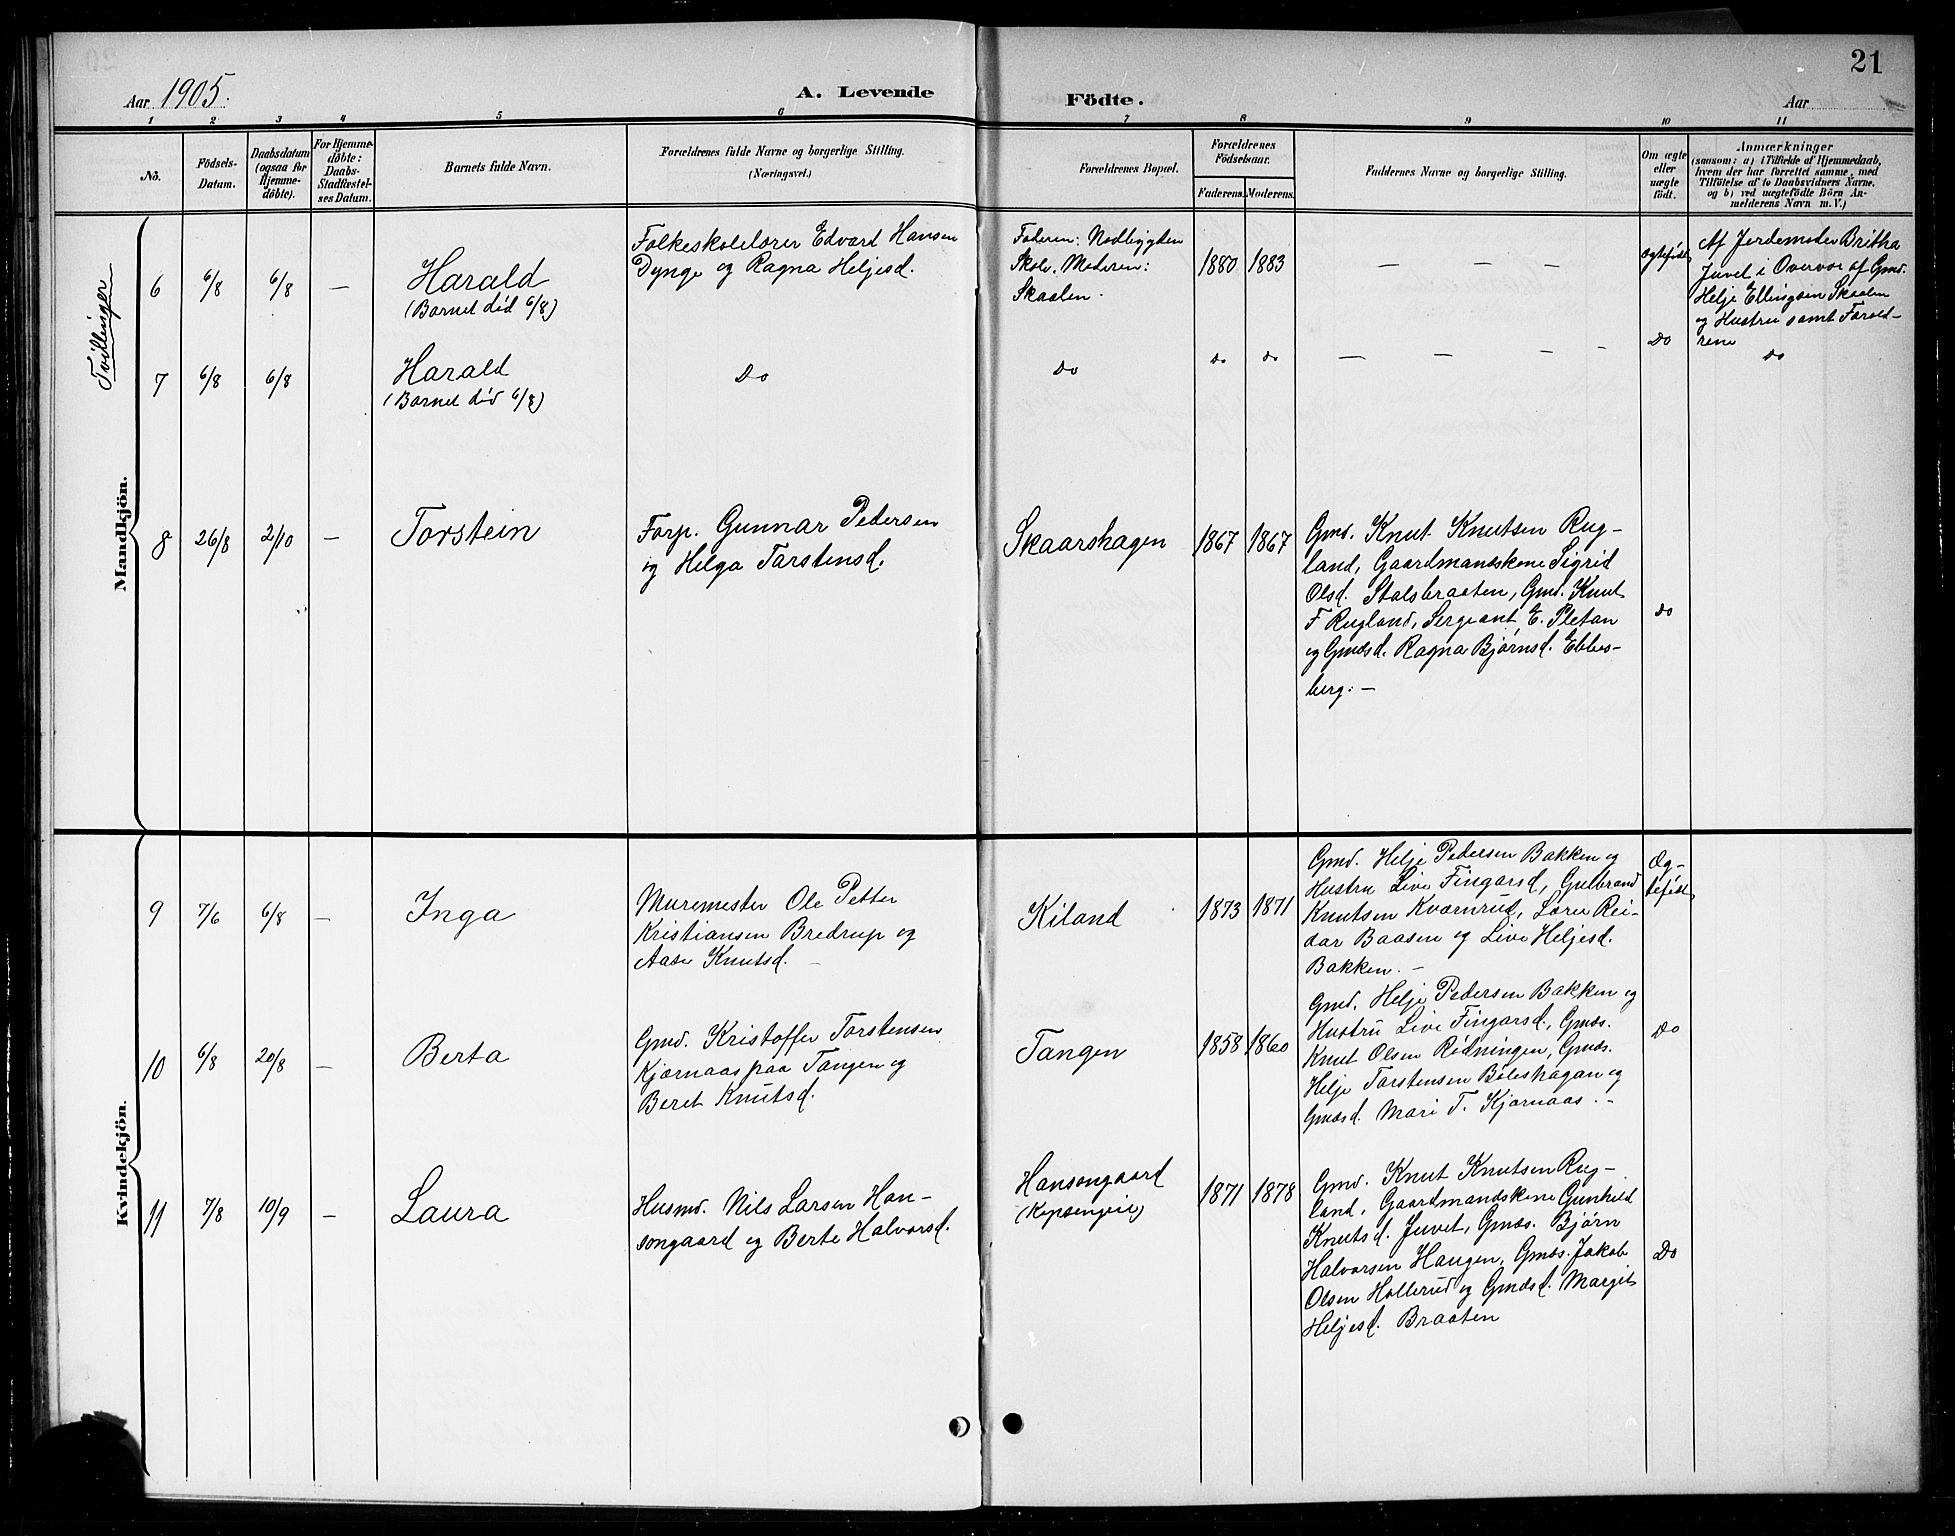 21
Aar 1905.
A. Levende
Födte.
Aar
1 2 3 4 5 6 7 8 9 10 11
No.
Födsels-
Datum.
Daabsdatum
(ogsaa for
Hjemme-
döbte).
For Hjemme-
döbte:
Daabs-
Stadfæstel-
ses Datum.
Barnets fulde Navn.
Forældrenes fulde Navne og borgerlige Stilling.
(Næringsvei.)
Forældrenes Bopæl.
Forældrenes
Födselsaar.
Faderens. Moderens.
Faddernes Navne og borgerlige Stilling.
Om ægte
eller
uægte
födt.
Anmærkninger
(saasom: a) i Tilfælde af Hjemmedaab,
hvem der har forrettet samme, med
Tilföielse af to Daabsvidners Navne,
og b) ved uægtefödte Börn An-
melderens Navn m. V.)
Tvillinger
Mandkjön.
6 6/8 6/8 —
Harald
(Barnet död 6/8)
Folkeskolelærer Edvard Hansen
Dynge og Ragna Heljesd.
Faderen: Nodbygden
Skole. Moderen:
Skaalen.
1880 1883
— — —
Ægtefödt
Af Jordemoder Britha
Juvet i Overvær af Gmd.
Helje Ellingsen Skaalen
og Hustru samt Foræld-
rene
7 6/8 6/8
Harald
(Barnet död 6/8)
Do
Do
Do Do
— — — —
Do
Do
8 26/8 2/10 —
Torstein
Forp. Gunnar Pedersen
og Helga Torstensd.
Skaarshagen
1867 1867
Gmd. Knut Knutsen Rug-
land, Gaardmandskone Sigrid
Olsd. Stalsbraaten, Gmd. Knut
F Rugland, Sergeant E. Pletan
og Gmdsd. Ragna Bjørnsd. Ebbes-
berg. —
Do
Kvindekjön.
9 7/6 6/8 —
Inga
Muremester Ole Petter
Kristiansen Bredrup og
Aase Knutsd. —
Kiland
1873 1871
Gmd. Helje Pedersen Bakken og
Hustru Live Fingarsd, Gulbrand
Knutsen Kværnrud, Lærer Rei-
dar Baasen og Live Heljesd.
Bakken. —
Æg-
tefödt
10 6/8 20/8 —
Berta
Gmd. Kristoffer Torstensen
Kjærnaas paa Tangen og
Beret Knutsd.
Tangen
1858 1860
Gmd. Helje Pedersen Bakken og
Hustru Live Fingarsd., Gmds.
Knut Olsen Rødningen, Gmds.
Helje Torstensen Bøleshagan og
Gmdsd. Mari T. Kjærnaas. -
Do
11 7/8 10/9 —
Laura
Husmd. Nils Larsen Han-
songaard og Berte Halvorsd.
Hansongaard
1871 1878
Gmd. Knut Knutsen Rug-
land, Gaardmandskone Gunhild
Knutsd. Juvet, Gmds. Bjørn
Halvorsen Haugen, Gmds. Jakob
Olsen Hollerud og Gmdsd. Margit
Heljesd. Braaten
Do